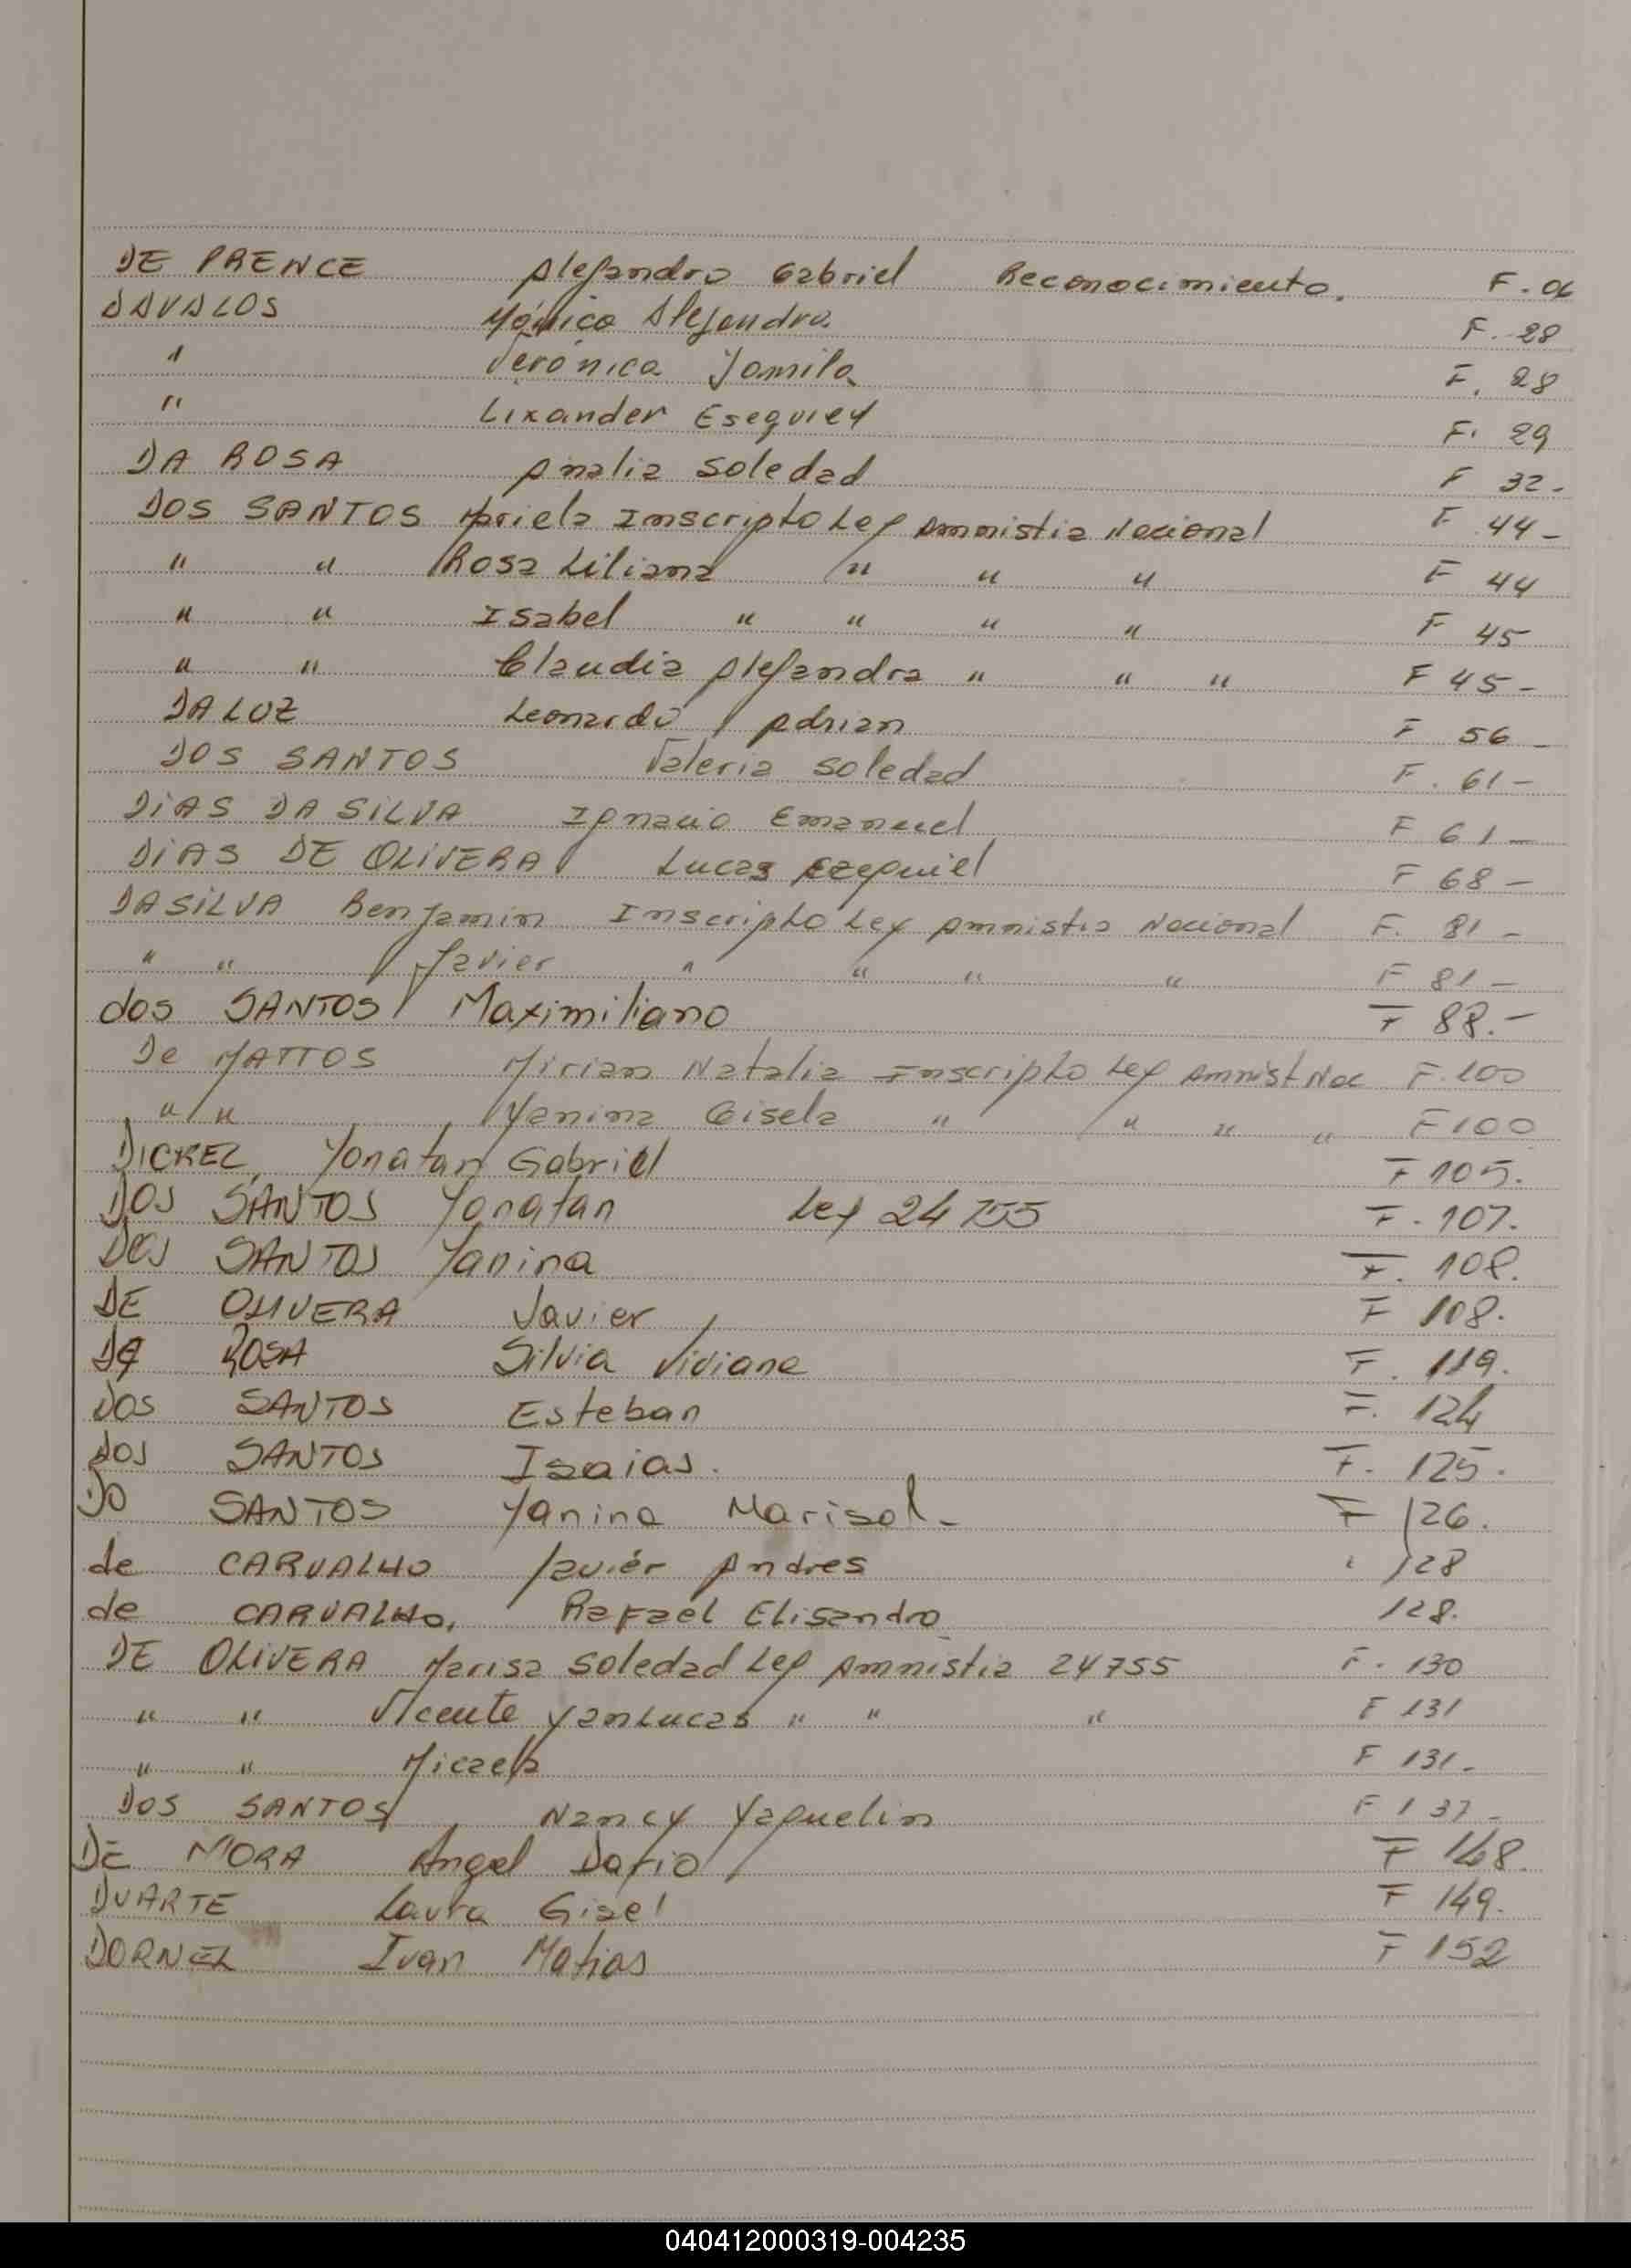 DE PRENCE Alejandro Gabriel Reconocimiento. F. 06
DAVALOS Mónica Alejandra F. 28
" Verónica Yamila F. 28
" Lixander Esequiel F. 29
DA ROSA Analia Soledad F 32-
DOS SANTOS Mariela Inscripto Ley Amnistia Nacional F 44-
" " Rosa Liliana " " " F 44
" " Isabel " " " " F 45
" " Claudia Alejandra " " " F 45-
DALUZ Leonardo Adrian F 56-
DOS SANTOS Valeria Soledad F. 61-
DIAS DA SILVA Ignacio Emanuel F 61-
DIAS DE OLIVERA Lucas Ezequiel F 68-
DASILVA Benjamin Inscripto Ley Amnistia Nacional F. 81-
" " Javier " " " " F 81-
dos SANTOS Maximiliano F 88.-
De MATTOS Mirian Natalia Inscripto Ley Amnist Nac F.100
" " Yanina Gisela " " " " F100
DICKEL, Yonatan Gabriel F 105.
DOS SANTOS Yonatan Ley 24755 F. 107.
DOS SANTOS Yanina F. 108.
DE OLIVERA Javier F 108.
DA ROSA Silvia Viviana F. 119.
DOS SANTOS Esteban F. 124
dos SANTOS Isaias. F. 125.
DO SANTOS Yanina Marisol- F 126.
de CARVALHO Javiér Andres " 128
de CARVALHO, Rafael Elisandro 128.
DE OLIVERA Marisa Soledad Ley Amnistia 24755 F. 130
" " Vicente YanLucas " " " F 131
" " Micaela F 131-
DOS SANTOS Nancy Yaquelin F 137-
DE MORA Angel Dario F 148.
DUARTE Laura Gisel F 149.
DORNEL Ivan Matias F 152
040412000319-004235